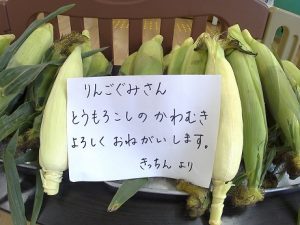 りんごぐみさん
とうもろこしの かわむき
よろしく おねがいします。
きっちん より